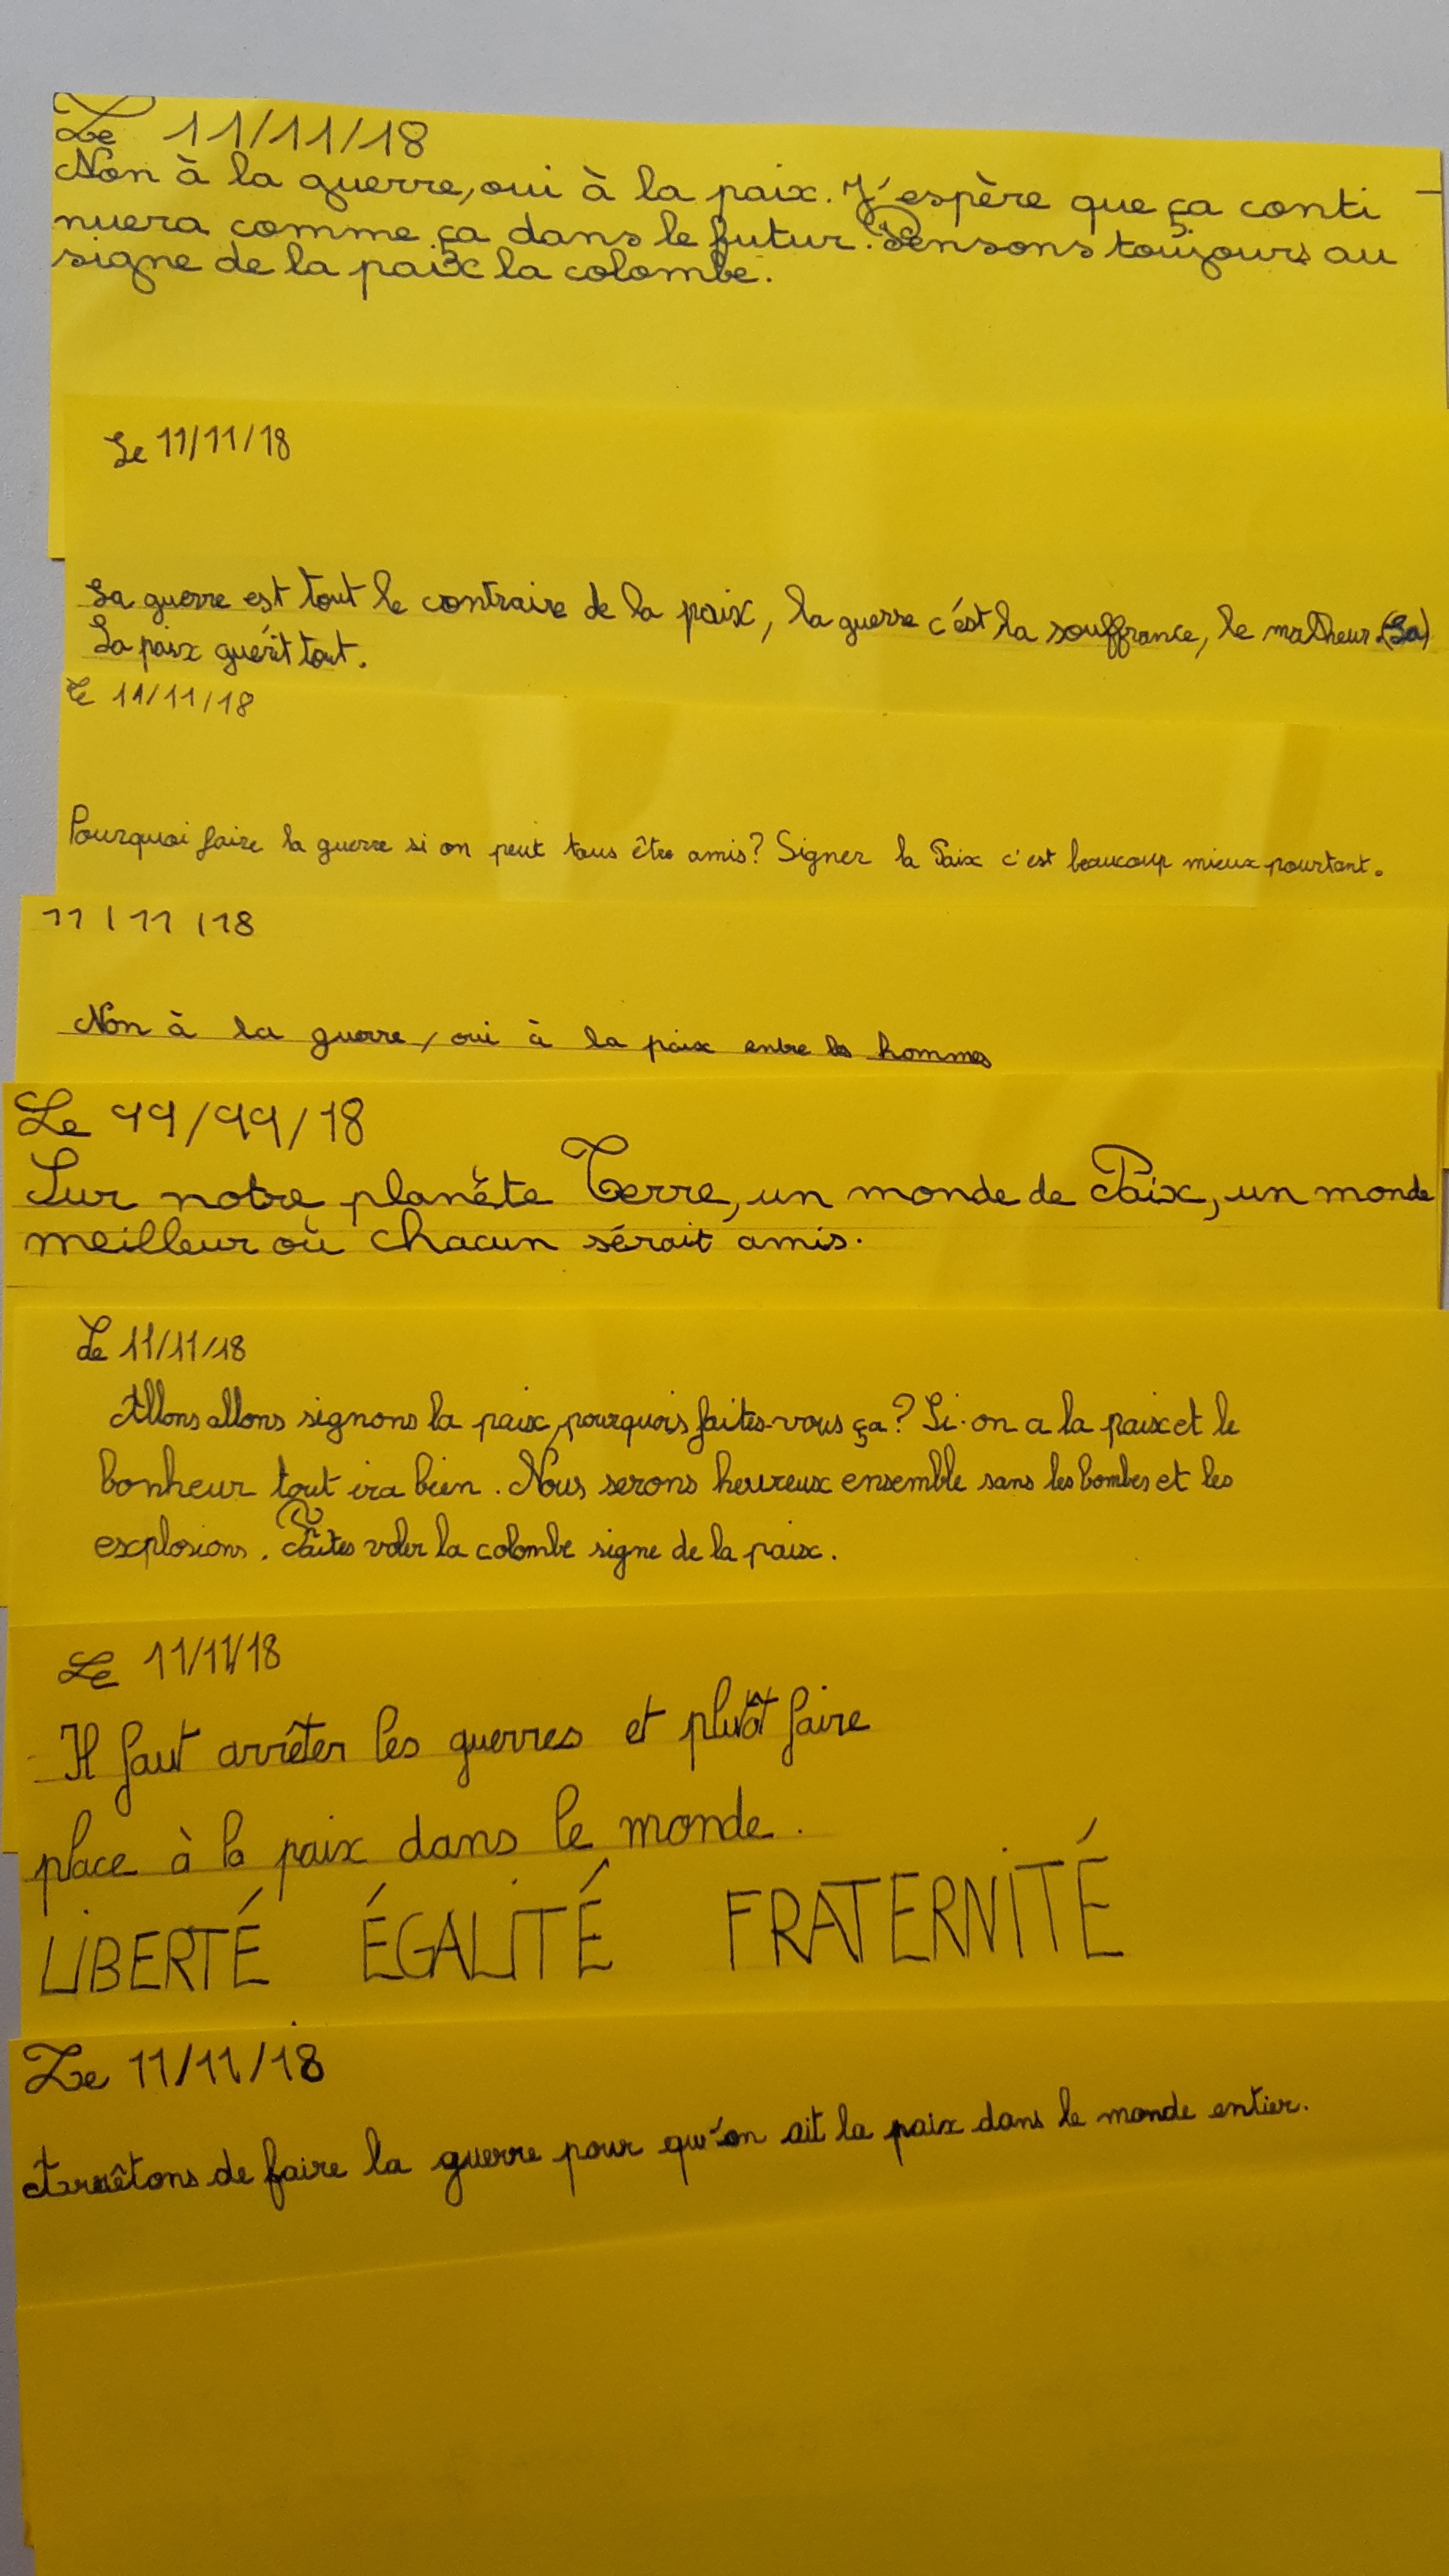 Le 11/11/18
Non à la guerre, oui à la paix. J'espère que ça conti-
nuera comme ça dans le futur. Pensons toujours au
signe de la paix la colombe.
Le 11/11/18
La guerre est tout le contraire de la paix, la guerre c'est la souffrance, le malheur. (La)
La paix guérit tout.
Le 11/11/18
Pourquoi faire la guerre si on peut tous être amis? Signer la Paix c'est beaucoup mieux pourtant.
11/11/18
Non à la guerre, oui à la paix entre les hommes
Le 11/11/18
Sur notre planète Terre, un monde de Paix, un monde
meilleur où chacun sérait amis.
Le 11/11/18
Allons allons signons la paix, pourquois faites-vous ça? Si on a la paix et le
bonheur tout ira bien. Nous serons heureux ensemble sans les bombes et les
explosions. Faites voler la colombe signe de la paix.
Le 11/11/18
Il faut arrêter les guerres et plutôt faire
place à la paix dans le monde.
LIBERTÉ ÉGALITÉ FRATERNITÉ
Le 11/11/18
Arrêtons de faire la guerre pour qu'on ait la paix dans le monde entier.